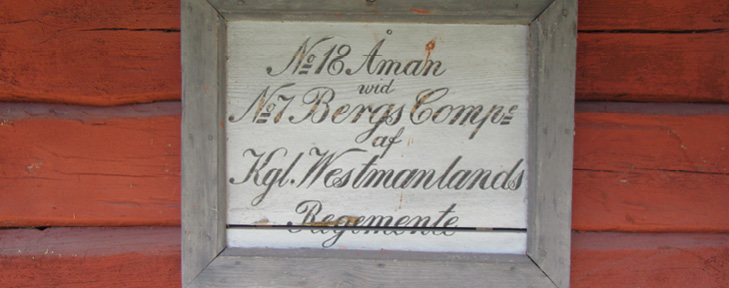 No 18 Åman
wid
No 7 Bergs Compe
af
Kgl. Westmanlands
Regemente